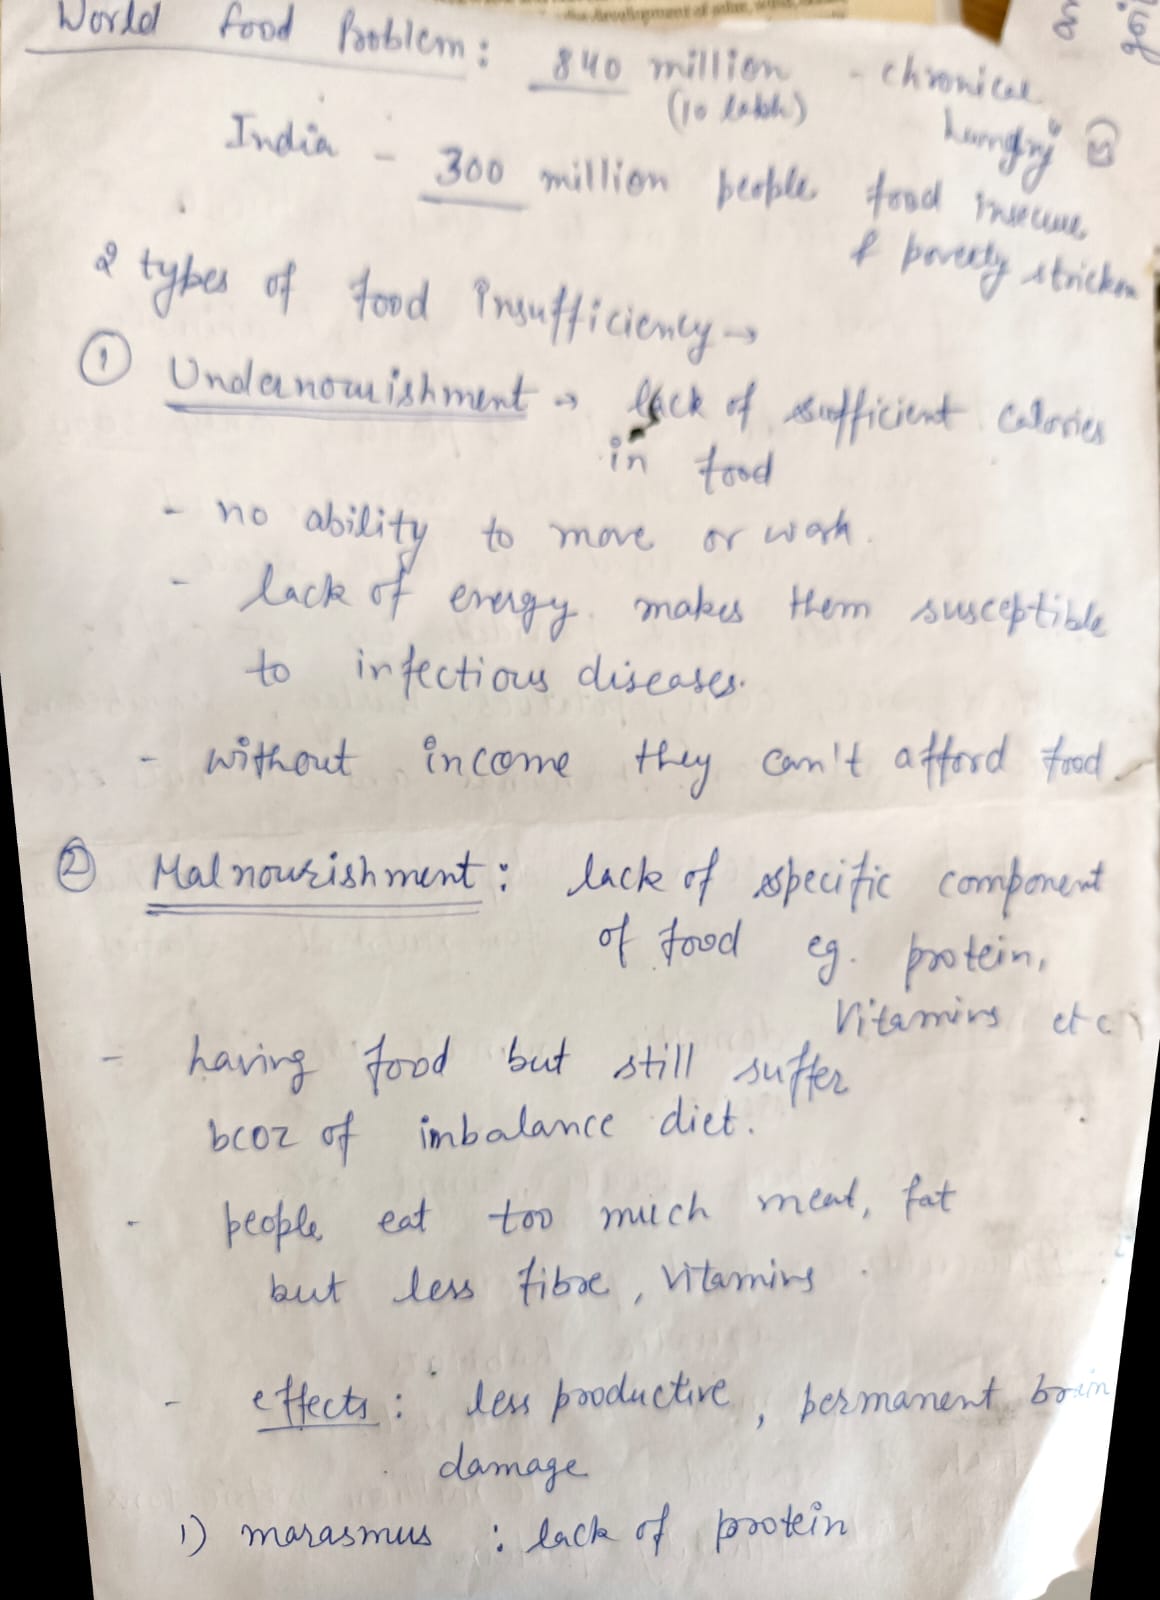 World food Problem: 840 million - chronical
(10 lakh) hungry
India - 300 million people food insecure
& poverty stricken
2 types of food insufficiency →
① Undernourishment → lack of sufficient calories
in food
- no ability to move or work.
- lack of energy makes them susceptible
to infectious diseases.
- without income they can't afford food
② Malnourishment: lack of specific component
of food eg. protein,
Vitamins etc
- having food but still suffer
bcoz of imbalance diet.
- people eat too much meat, fat
but less fibre, vitamins
- effects: less productive, permanent brain
damage
1) marasmus : lack of protein